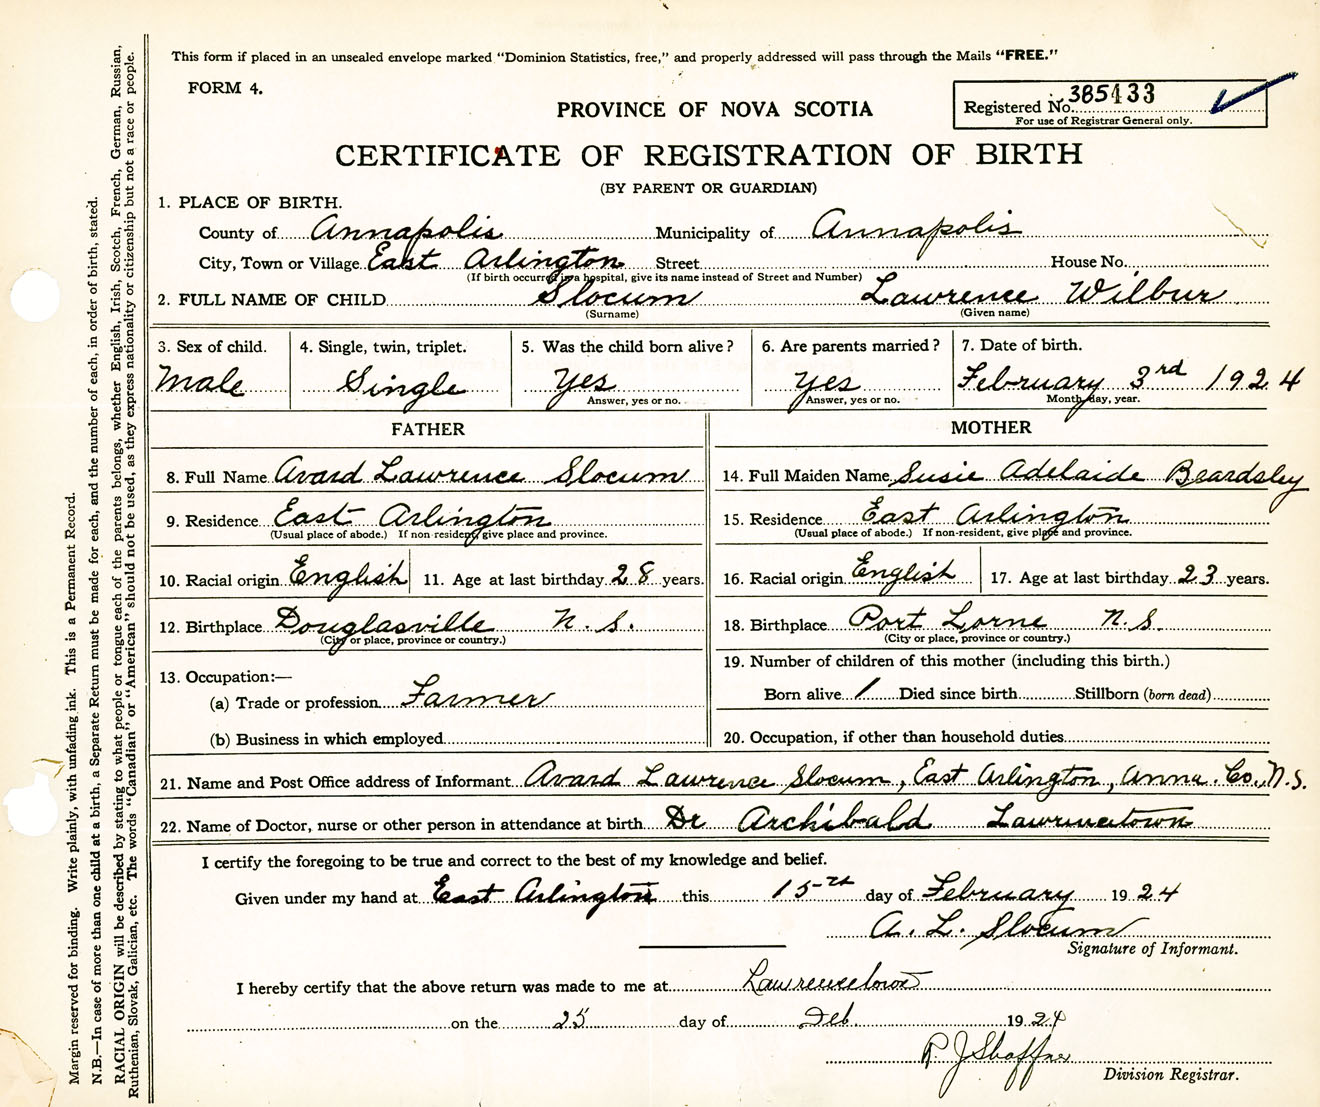 This form if placed in an unsealed envelope marked "Dominion Statistics, free," and properly addressed will pass through the Mails "FREE."
FORM 4.
Registered No. 385433
For use of Registrar General only.
PROVINCE OF NOVA SCOTIA
CERTIFICATE OF REGISTRATION OF BIRTH
(BY PARENT OR GUARDIAN)
1. PLACE OF BIRTH.
County of Annapolis Municipality of Annapolis
City, Town or Village East Arlington Street House No.
(If birth occurred in a hospital, give its name instead of Street and Number)
2. FULL NAME OF CHILD Slocum Lawrence Wilbur
(Surname) (Given name)
3. Sex of child. 4. Single, twin, triplet. 5. Was the child born alive? 6. Are parents married? 7. Date of birth.
Male Single Yes Yes February 3rd 1924
Answer, yes or no. Answer, yes or no. Month, day, year.
FATHER MOTHER
8. Full Name Avard Lawrence Slocum 14. Full Maiden Name Susie Adelaide Beardsley
9. Residence East Arlington 15. Residence East Arlington
(Usual place of abode.) If non-resident, give place and province. (Usual place of abode.) If non-resident, give place and province.
10. Racial origin English 11. Age at last birthday 28 years. 16. Racial origin English 17. Age at last birthday 23 years.
12. Birthplace Douglasville N.S. 18. Birthplace Port Lorne N.S.
(City or place, province or country.) (City or place, province or country.)
13. Occupation:— 19. Number of children of this mother (including this birth.)
(a) Trade or profession Farmer Born alive 1 Died since birth Stillborn (born dead)
(b) Business in which employed 20. Occupation, if other than household duties
21. Name and Post Office address of Informant Avard Lawrence Slocum, East Arlington, Anna. Co., N.S.
22. Name of Doctor, nurse or other person in attendance at birth Dr Archibald Lawrencetown
I certify the foregoing to be true and correct to the best of my knowledge and belief.
Given under my hand at East Arlington this 15th day of February 1924
A. L. Slocum
Signature of Informant.
I hereby certify that the above return was made to me at Lawrencetown
on the 25 day of Feb. 1924
R J Shaffner
Division Registrar.
Margin reserved for binding. Write plainly, with unfading ink. This is a Permanent Record.
N.B.—In case of more than one child at a birth, a Separate Return must be made for each, and the number of each, in order of birth, stated.
RACIAL ORIGIN will be described by stating to what people or tongue each of the parents belongs, whether English, Irish, Scotch, French, German, Russian,
Ruthenian, Slovak, Galician, etc. The words "Canadian" or "American" should not be used, as they express nationality or citizenship but not a race or people.